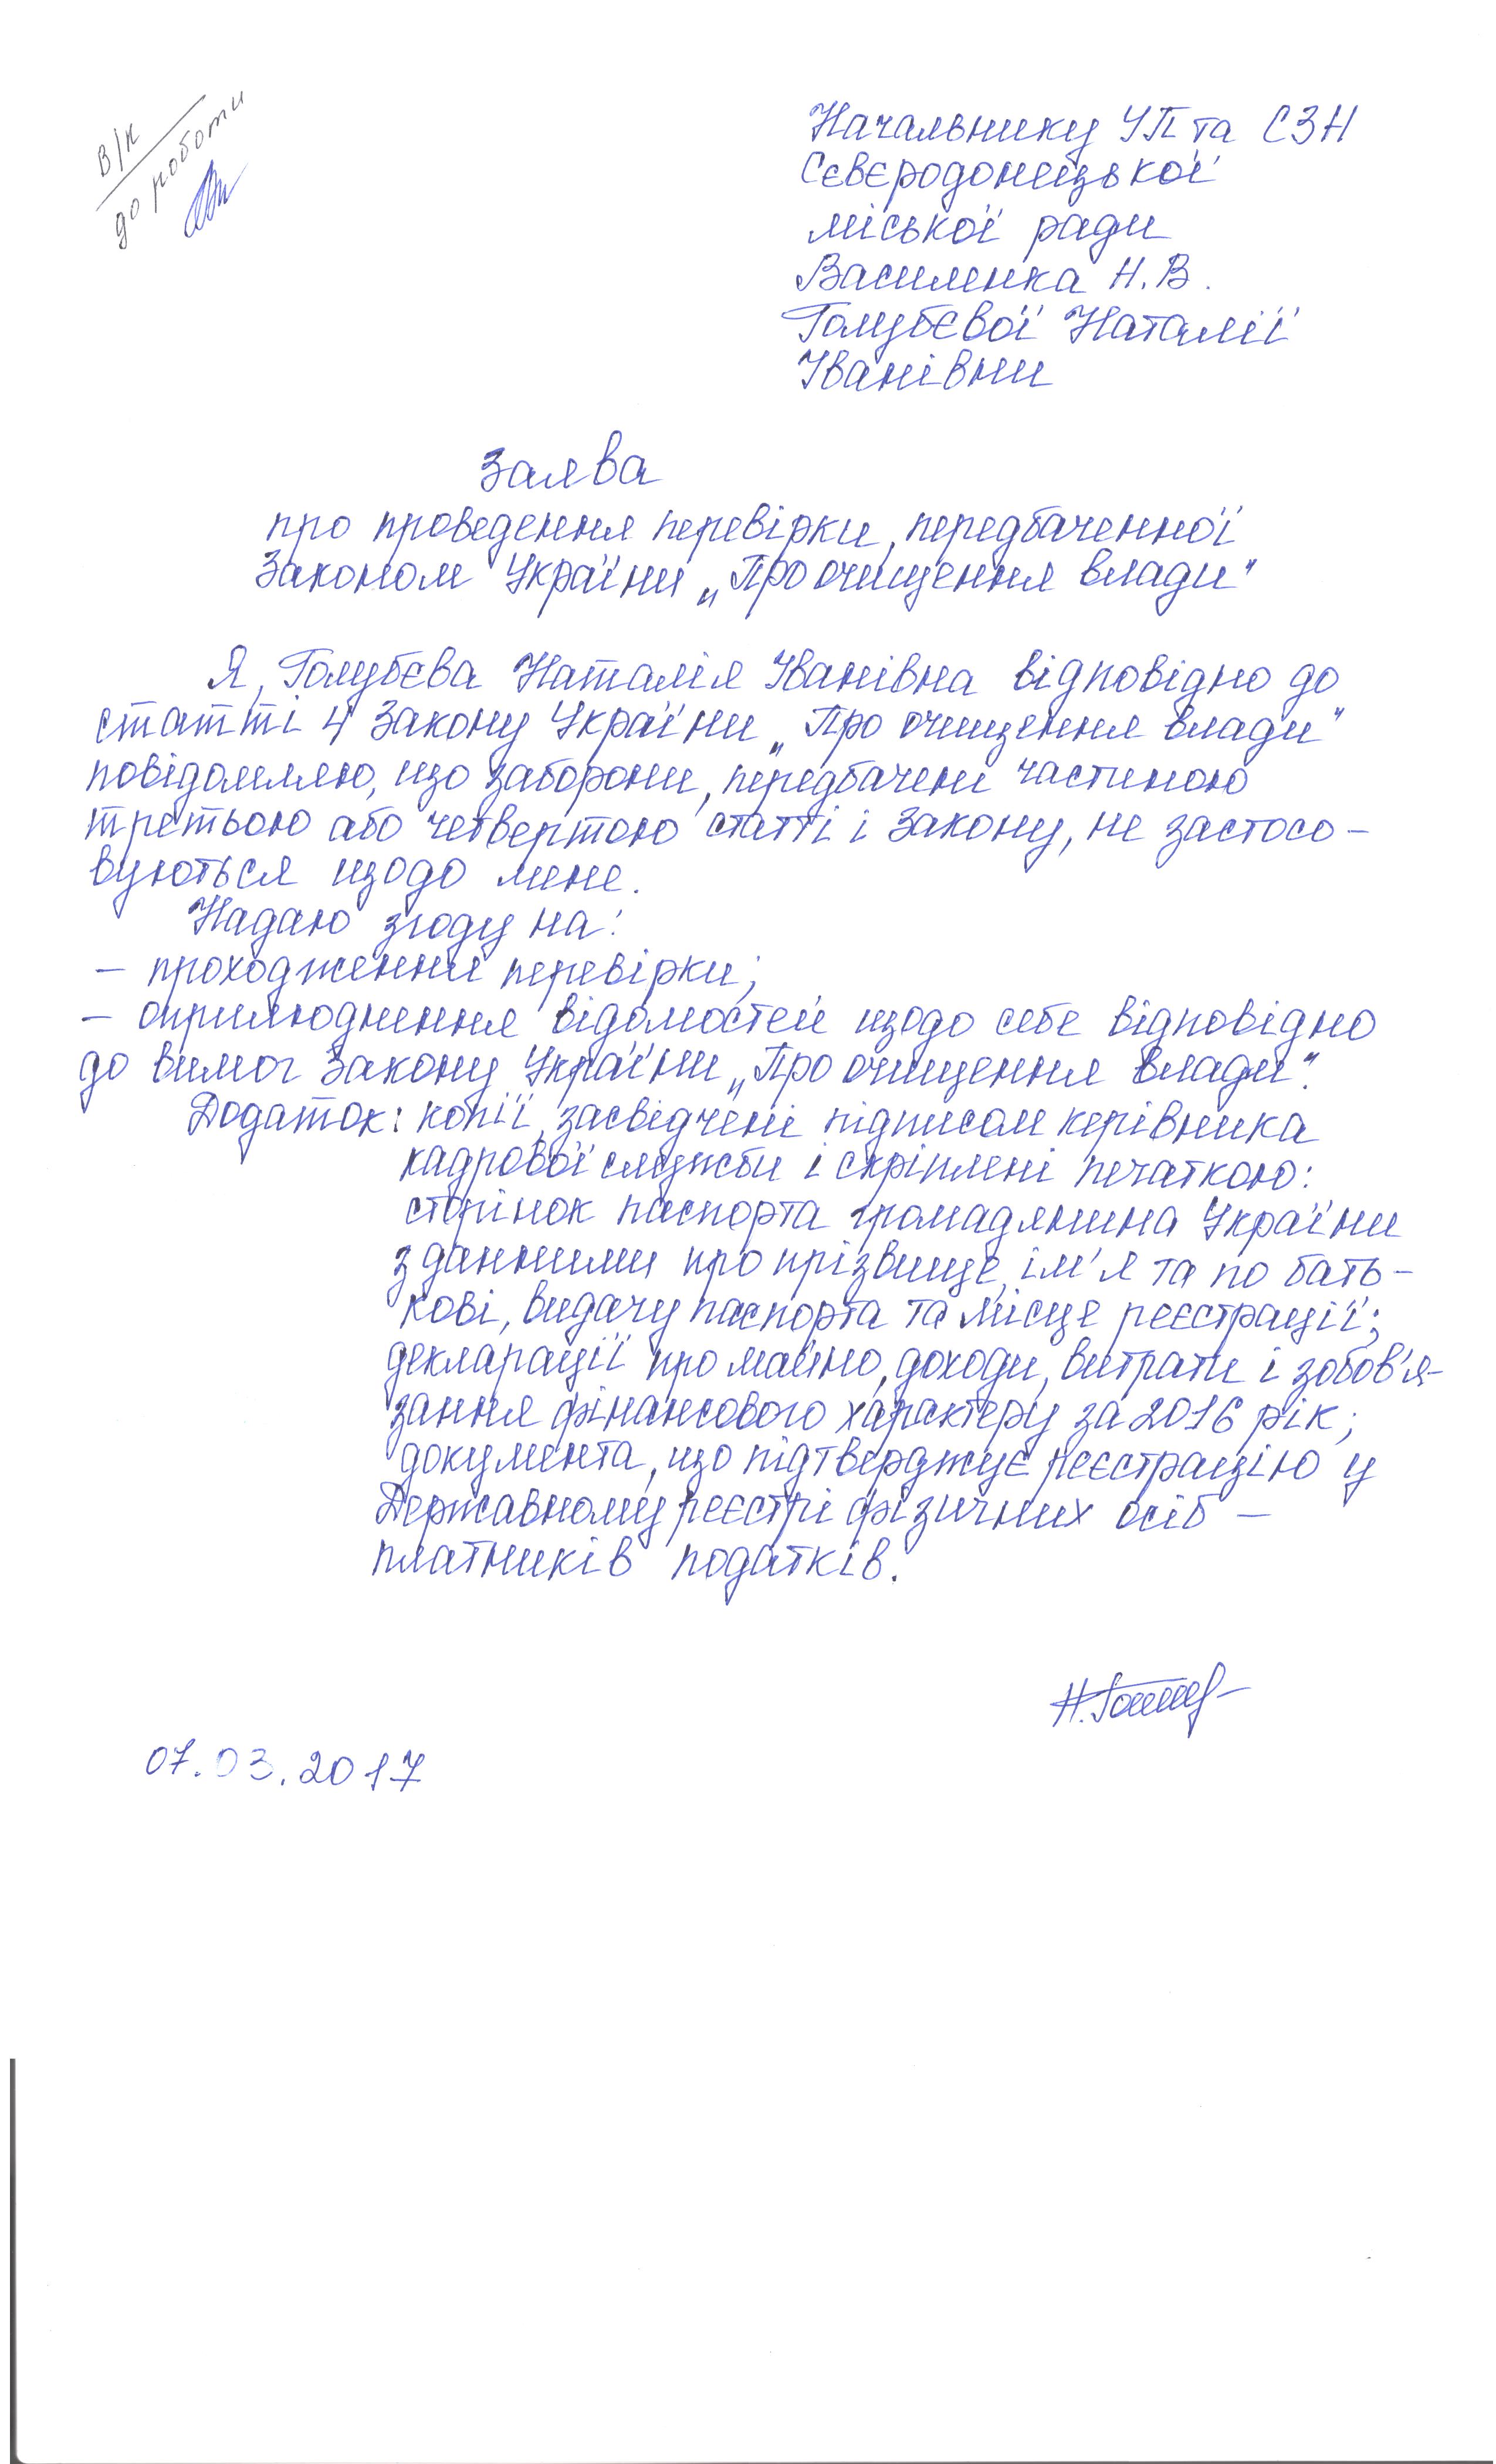 в/к
до роботи
Начальнику УП та СЗН
Сєвєродонецької
міської ради
Василенка Н.В.
Голубєвої Наталії
Іванівни
Заява
про проведення перевірки, передбаченної
Законом України „Про очищення влади"
Я, Голубєва Наталія Іванівна відповідно до
статті 4 Закону України „Про очищення влади"
повідомляю, що заборони, передбачені частиною
третьою або четвертою статті і Закону, не застосо-
вуються щодо мене.
Надаю згоду на:
- проходження перевірки;
- оприлюднення відомостей щодо себе відповідно
до вимог Закону України „Про очищення влади".
Додаток: копії, засвідчені підписом керівника
кадрової служби і скріплені печаткою:
сторінок паспорта громадянина України
з данними про прізвище, ім'я та по бать-
кові, видачу паспорта та місце реєстрації;
декларації про майно, доходи, витрати і зобов'я-
зання фінансового характеру за 2016 рік;
документа, що підтверджує реєстрацію у
Державному реєстрі фізичних осіб -
платників податків.
07.03.2017